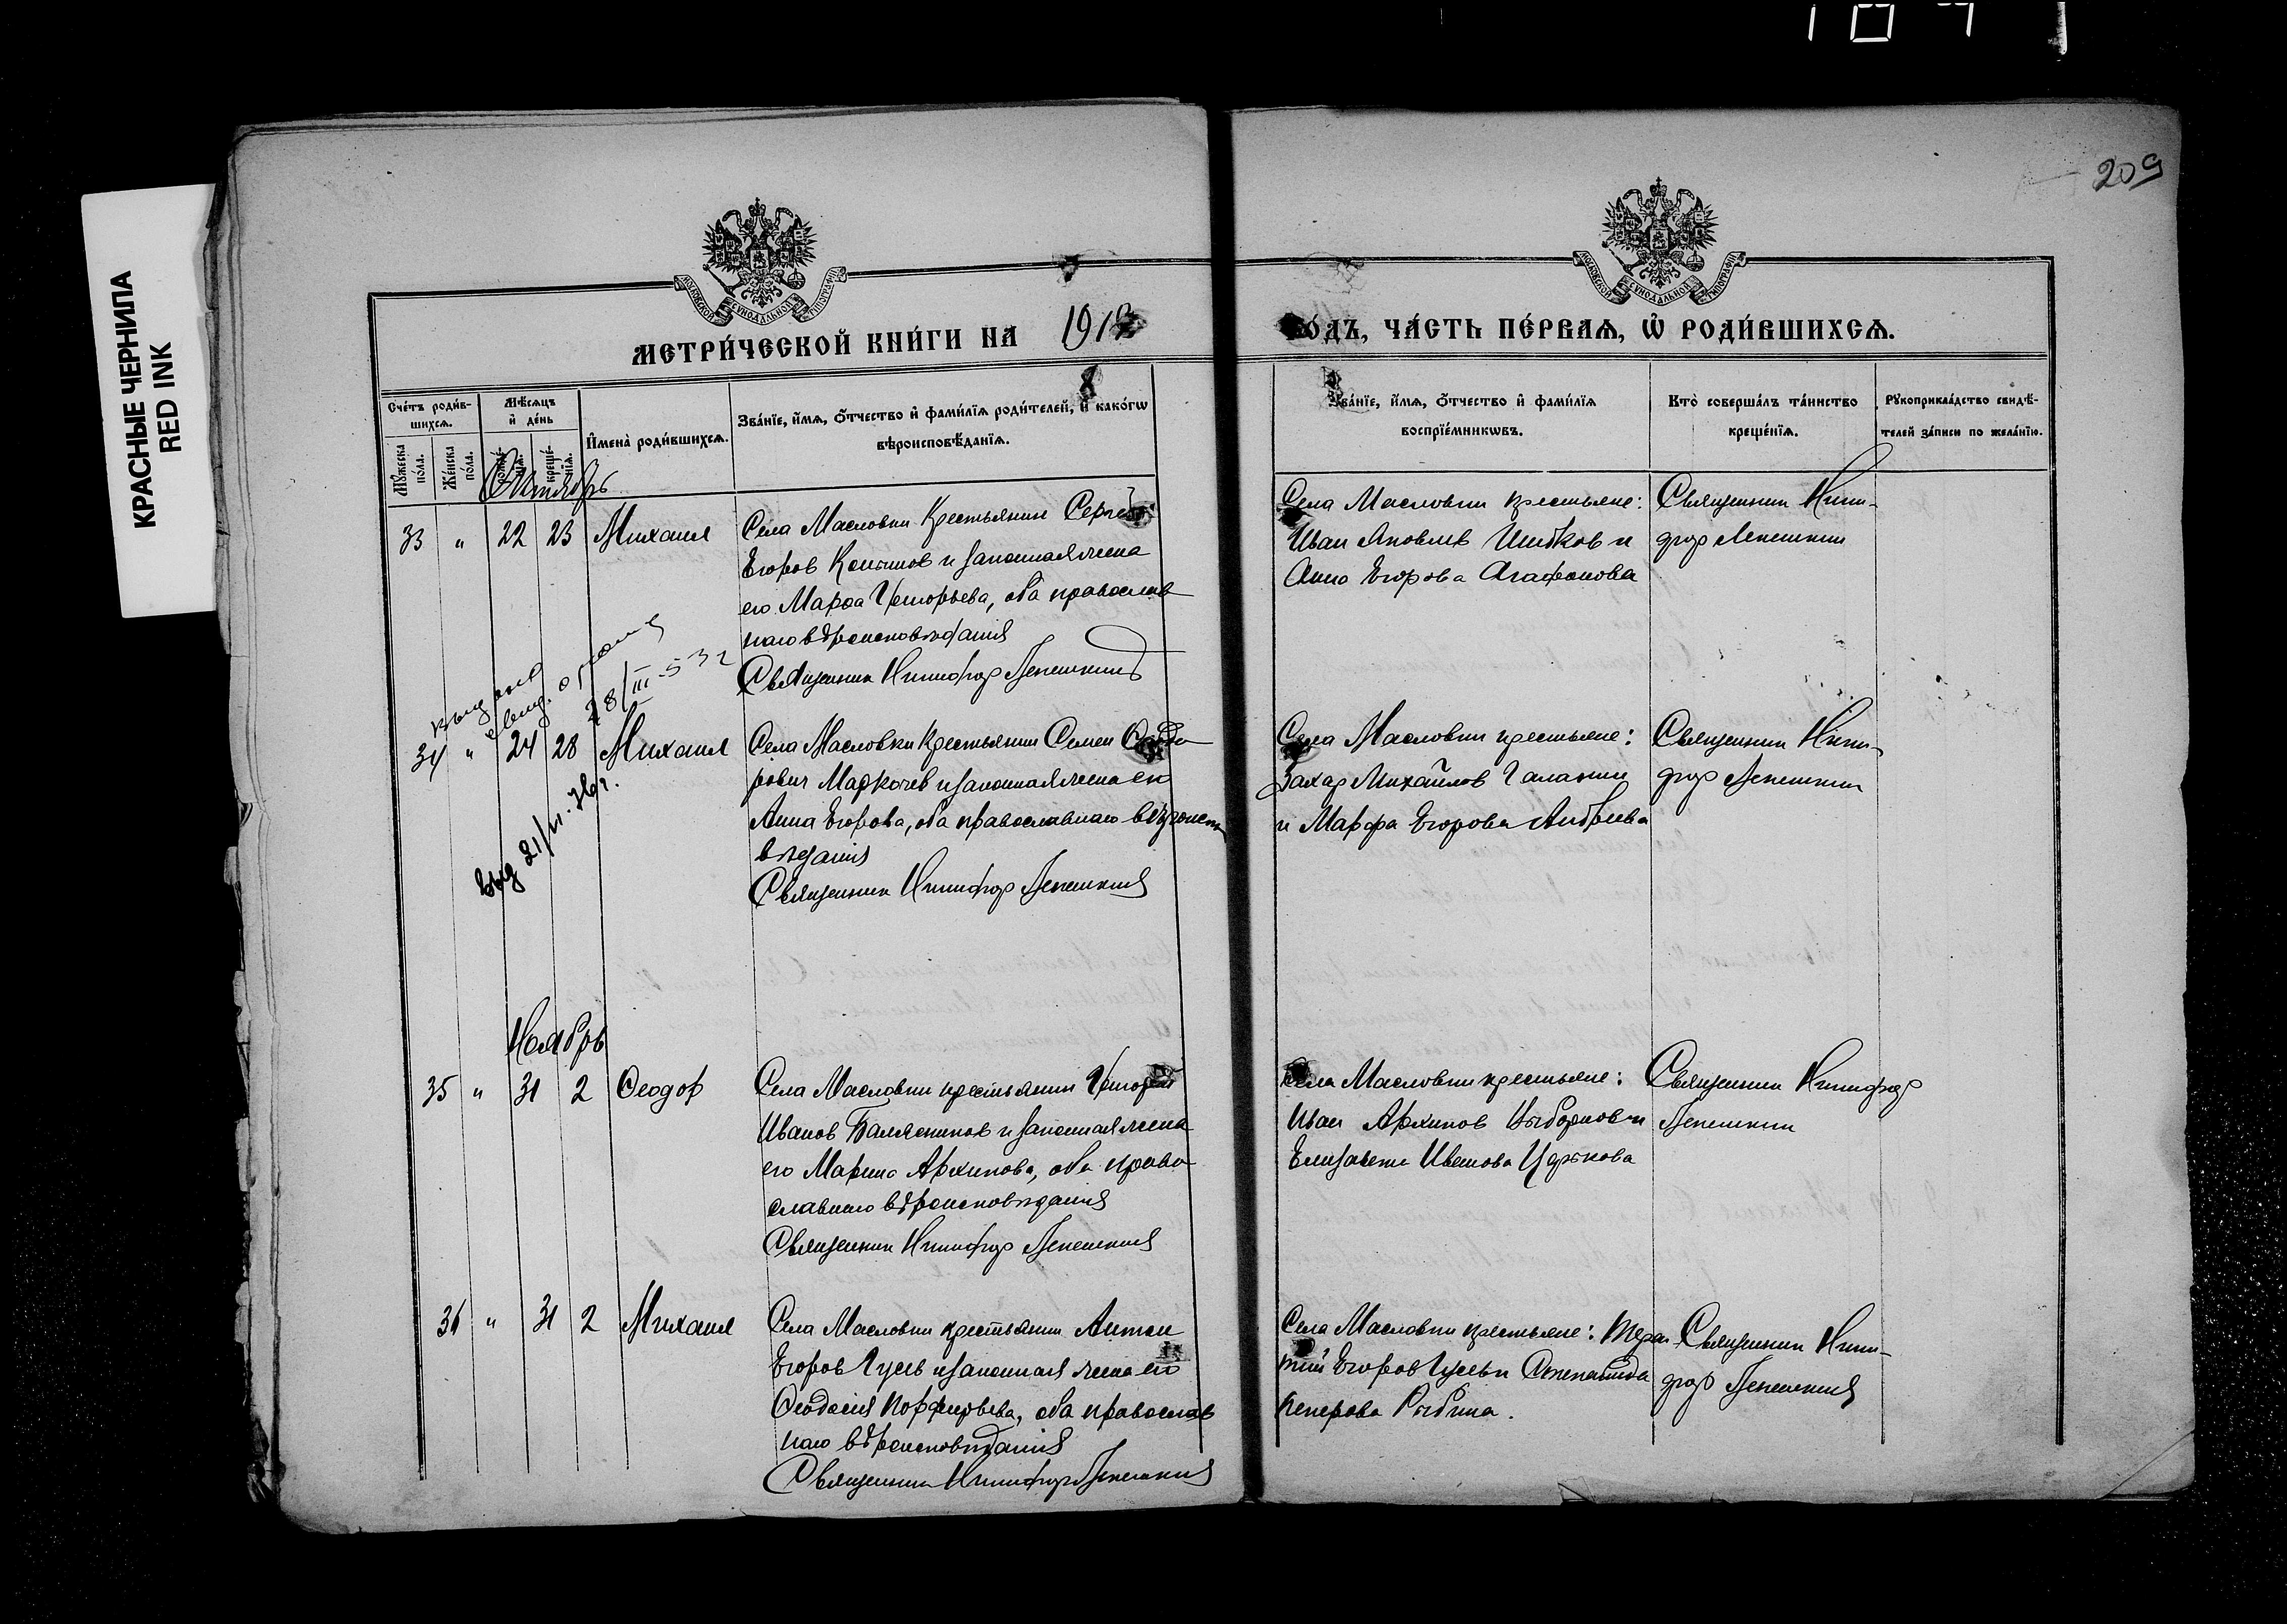 209
КРАСНЫЕ ЧЕРНИЛА
RED INK
МОСКОВСКОЙ СѴНОДАЛЬНОЙ ТИПОГРАФІИ
МОСКОВСКОЙ СѴНОДАЛЬНОЙ ТИПОГРАФІИ
МЕТРИ́ЧЕСКОЙ КНИ́ГИ НА 1912
ГО́ДЪ, ЧА́СТЬ ПЕ́РВАѦ, Ѡ҆ РОДИ́ВШИХСѦ.
Сче́тъ роди́в-
шихсѧ.
Мꙋ́жеска по́ла.
Же́нска по́ла.
Мѣ́сѧцъ
и҆ де́нь
рожде́-
нїѧ.
креще́-
нїѧ.
И҆мена̀ роди́вшихсѧ.
Зва́нїе, и҆́мѧ, ѻ҆́тчество и҆ фами́лїѧ роди́телей, и҆ како́гѡ
вѣроисповѣ́данїѧ.
Зва́нїе, и҆́мѧ, ѻ҆́тчество и҆ фами́лїѧ
воспрїе́мникѡвъ.
Кто̀ соверша́лъ та́инство
креще́нїѧ.
Рꙋкоприкла́дство свидѣ́-
телей за́писи по жела́нїю.
Октябрь
33 " 22 23 Михаил
Села Масловки Крестьянин Сергей
Егоров и законная жена
его Марфа Григорьева, оба православ
наго вѣроисповѣданія
Священник Никифор Лепешкин
Села Масловки крестьяне:
Иван Яковлев Шибков и
Анна Егорова Агафонова
Священник Ники-
фор Лепешкин
28/III-53 г
34 " 24 28 Михаил
Села Масловки Крестьянин Семен
рович Маркочев и законная жена его
Анна Егорова, оба православнаго вѣроиспо
вѣданія
Священник Никифор Лепешкин
выд 21/
Села Масловки крестьяне:
Захар Михайлов Галанин
и Марфа Егорова Андреева
Священник Ники-
фор Лепешкин
Ноябрь
35 " 31 2 Ѳеодор
Села Масловки крестьянин Григорий
Иванов Балясников и законная жена
его Марина Архипова, оба право
славнаго вѣроисповѣданія
Священник Никифор Лепешкин
Села Масловки крестьяне:
Иван Архипов и
Елизавета Иванова
Священник Никифор
Лепешкин
36 " 31 2 Михаил
Села Масловки крестьянин Антон
Егоров Гусев и законная жена его
Ѳеодосия Порфирьева, оба православ
наго вѣроисповѣданія
Священник Никифор Лепешкин
Села Масловки крестьяне: Терен
тий Егоров Гусев и Степанида
Петрова Рыбина.
Священник Ники-
фор Лепешкин